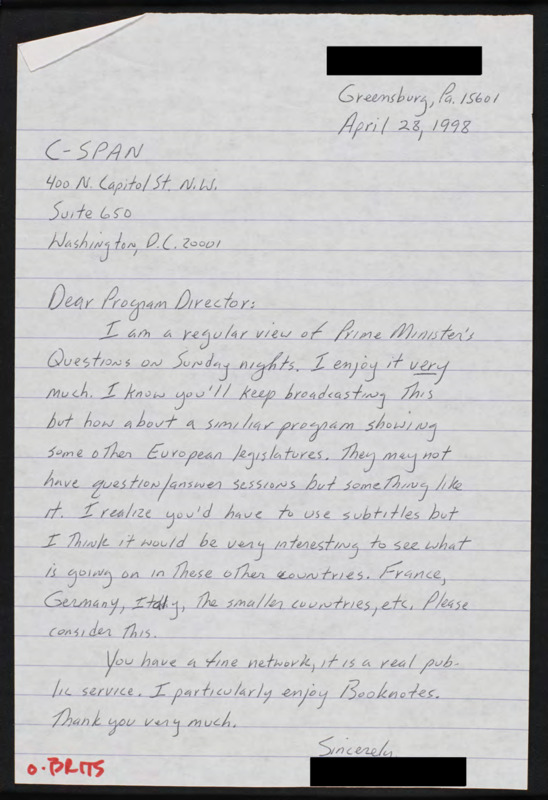 Greensburg, Pa. 15601
April 28, 1998
C-SPAN
400 N. Capitol St. N.W.
Suite 650
Washington, D.C. 20001
Dear Program Director:
I am a regular view of Prime Minister's
Questions on Sunday nights. I enjoy it very
much. I know you'll keep broadcasting This
but how about a similiar program showing
some other European legislatures. They may not
have question/answer sessions but something like
it. I realize you'd have to use subtitles but
I Think it would be very interesting to see what
is going on in These other countries. France,
Germany, Italy, The smaller countries, etc. Please
consider This.
You have a fine network, it is a real pub-
lic service. I particularly enjoy Booknotes.
Thank you very much.
Sincerely
O-BRITS